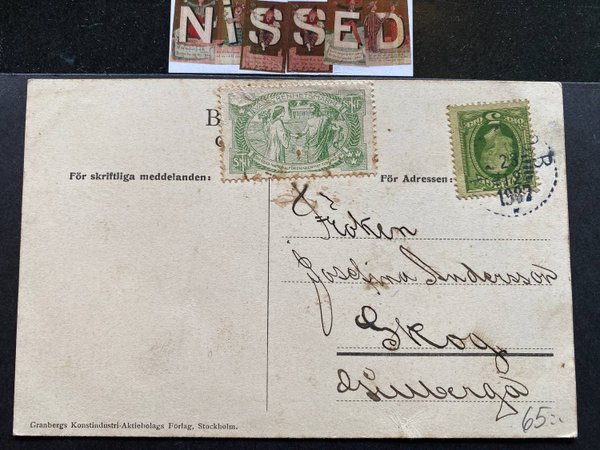 NISSED
För skriftliga meddelanden:
För Adressen:
1907
Fröken
Josefina Andersson
Skog
Granbergs Konstindustri-Aktiebolags Förlag, Stockholm.
65:-